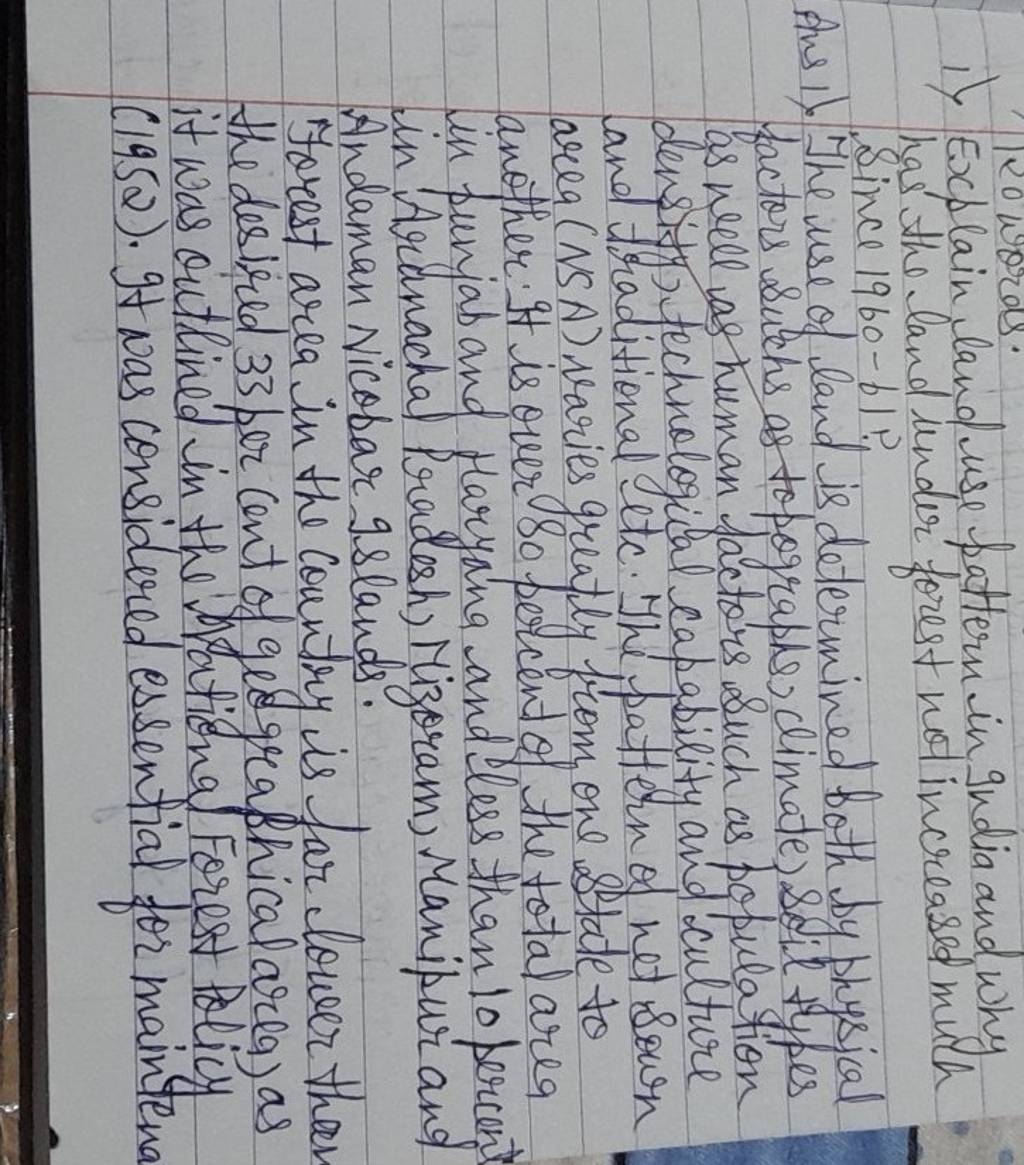 words.
1) Explain land use pattern in India and why
has the land under forest not increased much
Since 1960-61?
Ans 1) The use of land is determined both by physial
factors suchs as topographe, climate, soil types
as well as human factors such as population
density, technologial capability and culture
and traditional etc. The pattern of net sown
area (NSA) varies greatly from one State to
another. It is over 80 percent of the total area
in punjab and Haryana and less than 10 percent
in Arunachal Pradesh, Mizoram, Manipur and
Andaman Nicobar Islands.
Forest area in the country is far lower than
the desired 33 per cent of geographical area, as
it was outlined in the National Forest Policy
(1952). It was considered essential for maintena